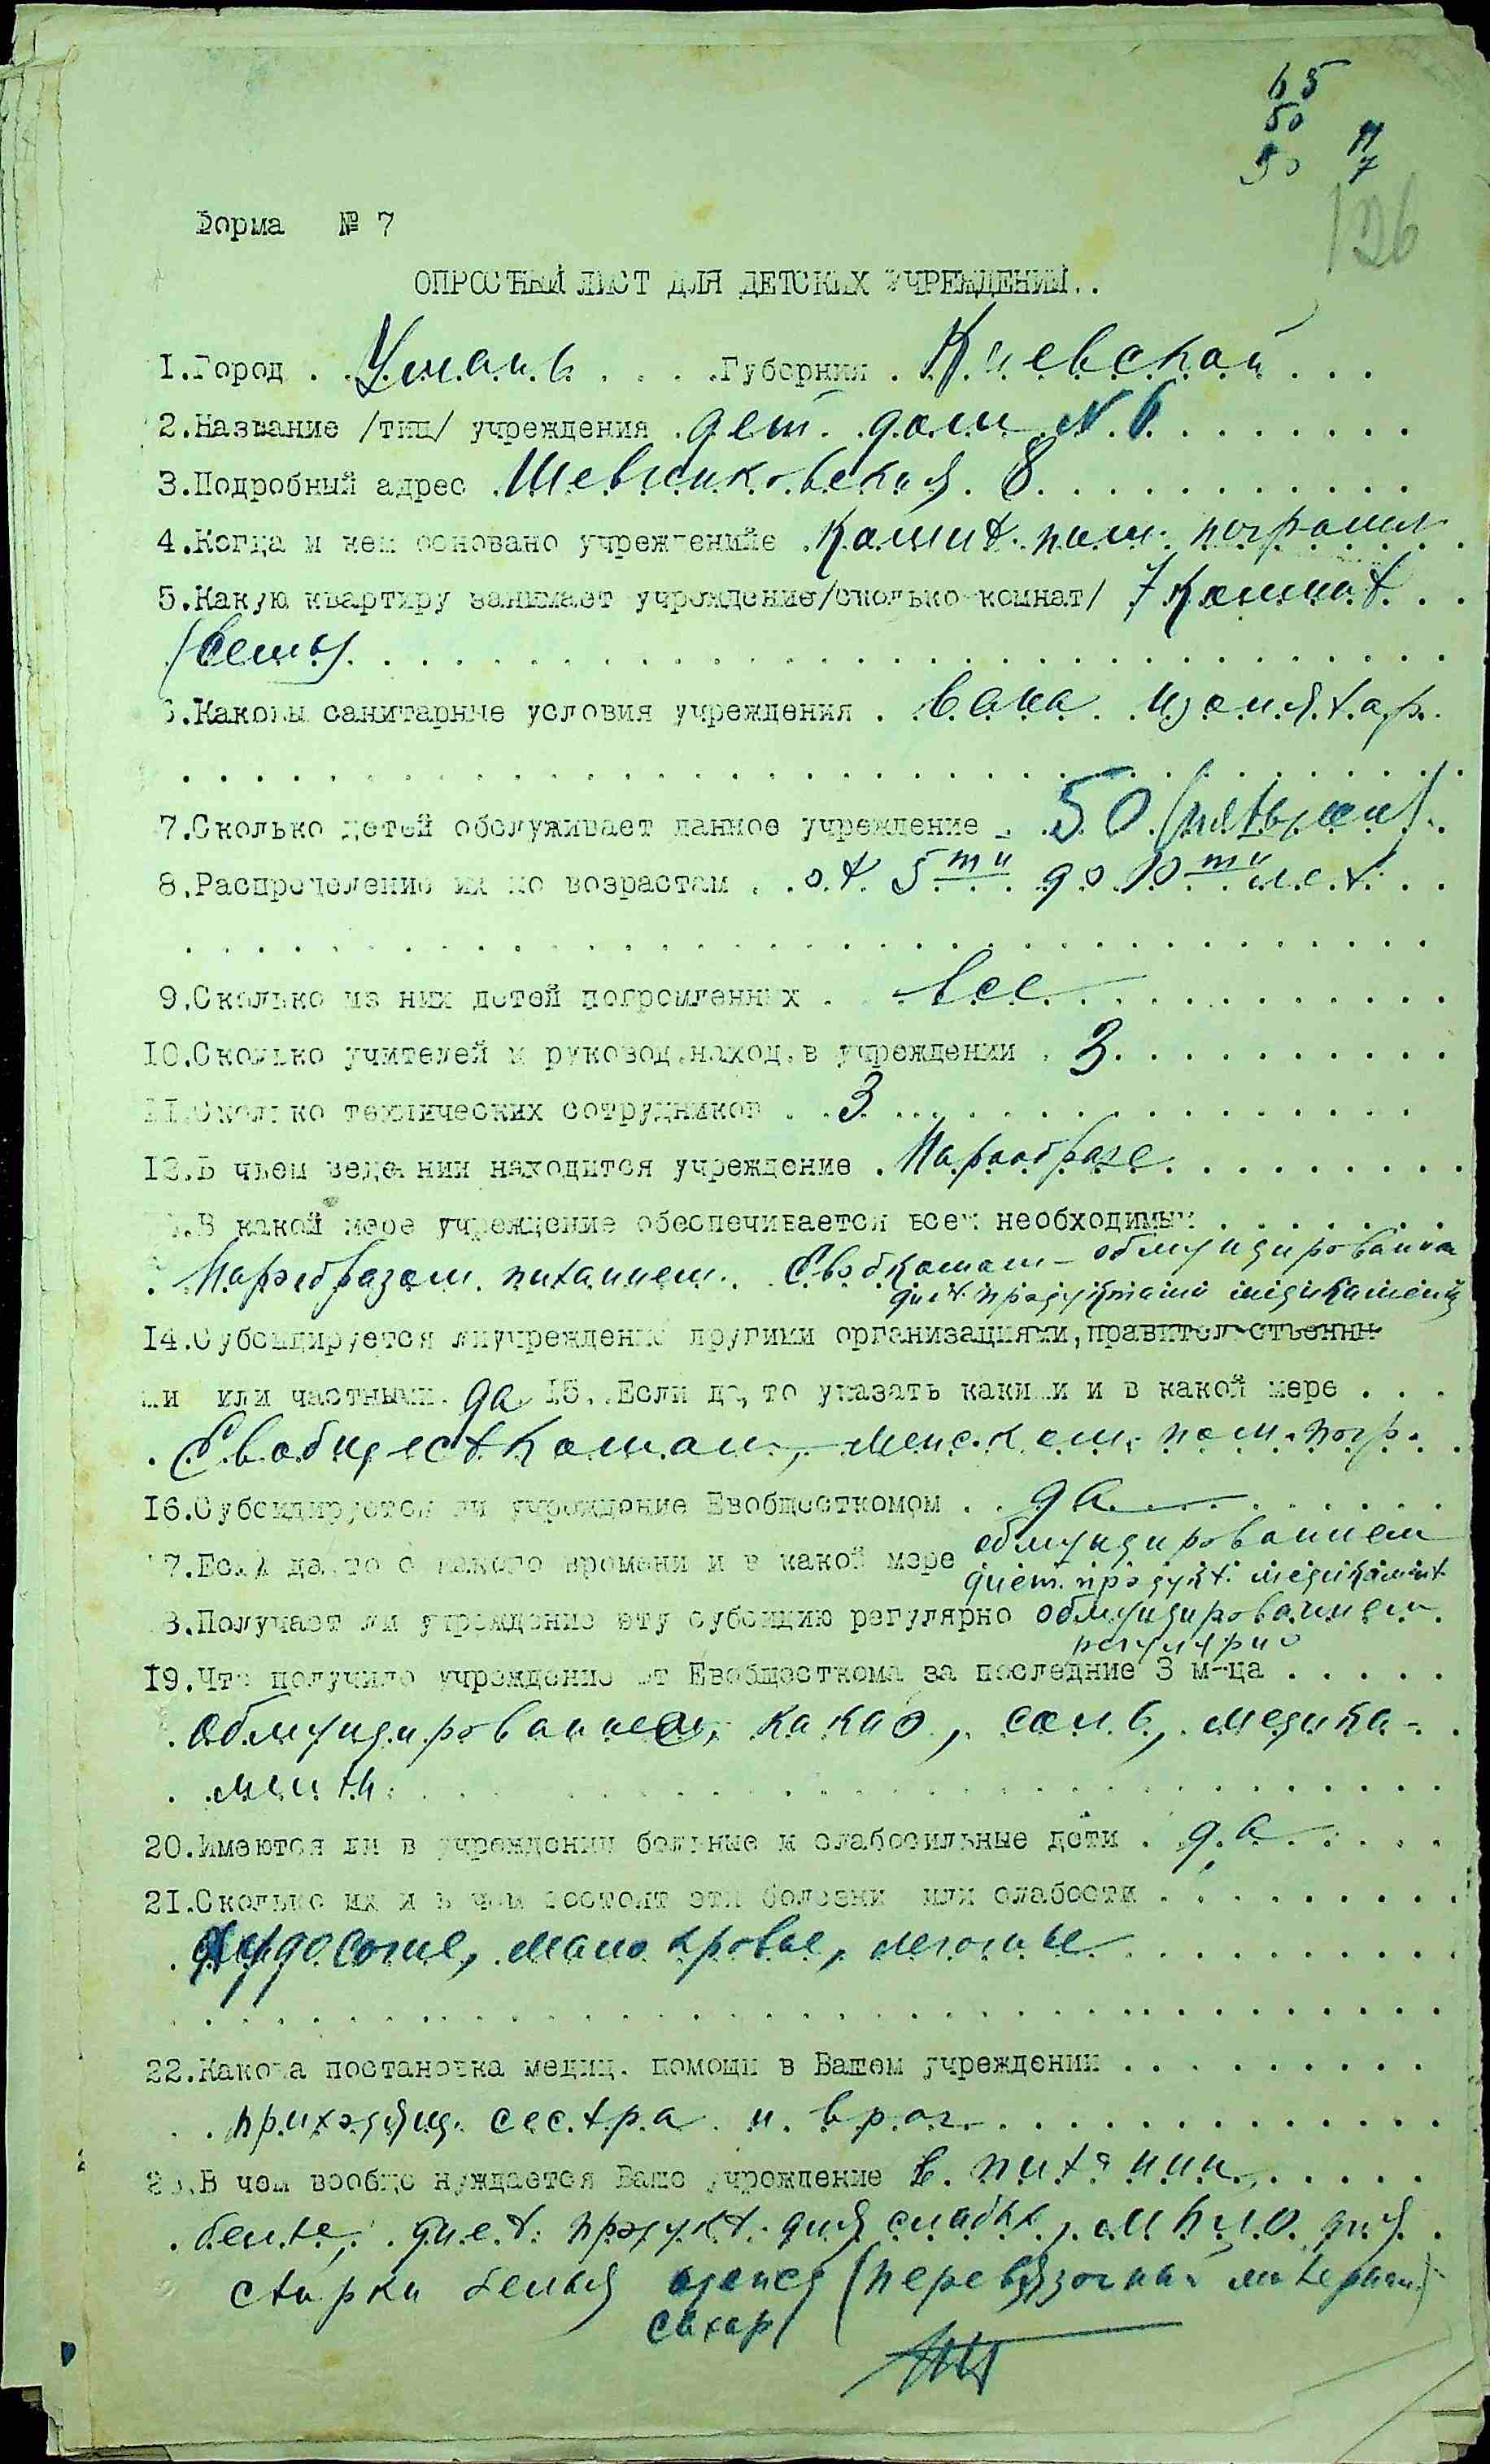 65
50
50 11
7
126
Форма № 7
ОПРОСТНЫЙ ЛИСТ ДЛЯ ДЕТСКИХ УЧРЕЖДЕНИЙ..
1.Город . Умань . . . .Губернии . Киевской . . .
2.Название /тип/ учреждения . дет. дом N 6 . . . . . . .
3.Подробный адрес . Шевченковская 8 . . . . . . . . . .
4.Когда и кем основано учреждениие . Комит. пом. погромл.
5.Какую квартиру занимает учреждение/сколько комнат/ 7 комнат . .
(семь) . . . . . . . . . . . . . . . . . . .
6.Каковы санитарные условия учреждения . вана изолятар.
7.Сколько детей обслуживает данное учреждение . 50 (пятьдесят).
8.Распределение их по возрастам . . от 5ти до 10ти лет . .
9.Сколько из них детей погромленных . все . . . . . . . .
10.Сколько учителей и руковод.наход.в учреждении . 3 . . . . . . . . .
11.Сколько технических сотрудников . . 3 . . . . . . . . . .
12.В чьем ведении находится учреждение . Наробразе . . . . . . .
13.В какой мере учреждение обеспечивается всем необходимым . . . . . .
. Наробразом питанием. Евобкомом - обмундированием
диет. продуктами медикаменты
14.Субсидируется лиучреждение другими организациями,правительственны-
ми или частными. да 15. Если да, то указать какими и в какой мере . . .
. Евобщесткомом, пом. погр.
16.Субсидируется ли учреждение Евобщесткомом . . да . . . . . .
17.Если да,то с какого времени и в какой мере обмундированием
диет. продукт. медикамент
18.Получает ли учреждение эту субсидию регулярно обмундированием
регулярно
19.Что получило учреждение от Евобщесткома за последние 3 м-ца . . . . .
. обмундированием, какао, соль, медика-
. менты.
20.Имеются ли в учреждении больные и слабосильные дети . да . . . .
21.Сколько их и в чем состоят эти болезни или слабости . . . . . . . . .
. худосочие, мало кровие, легочные . . . . . . . . .
22.Какова постановка медиц. помощи в Вашем учреждении . . . . . . . . .
. . приходящ. сестра и врач . . . . . . . . . . . .
23.В чем вообще нуждается Ваше учреждение в питании . . . . .
. белье, диет. продукт. для слабых, мыло для .
стирки белья одежд (перевязочный материал)
сахар